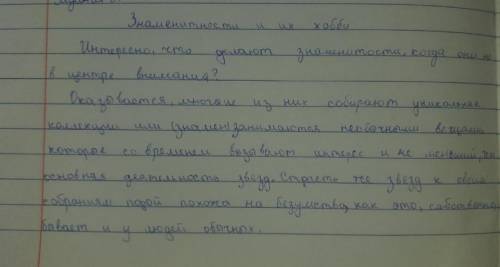 Знаменитности и их хобби
Интересно, что делают знаменитости, когда они не
в центре внимания?
Оказывается, многие из них собирают уникальные
коллекции или (знамен) занимаются необычными вещами
которое со временем вызывают интерес и не меньший, чем
основная деятельность звезд. Страсть же звезд к своим
собраниям порой похожа на безумство, как это, собственно,
бывает и у людей обычных.